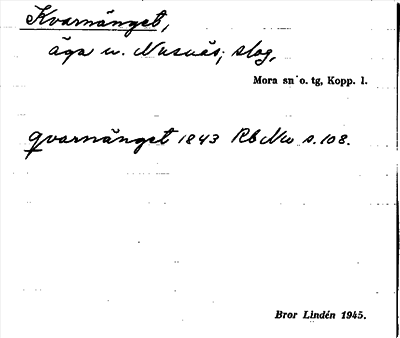 Kvarnänget,
äga n. Nusnäs; skog,
Mora sn o. tg, Kopp. l.
qvarnänget 1843 Rb Nu s. 108.
Bror Lindén 1945.